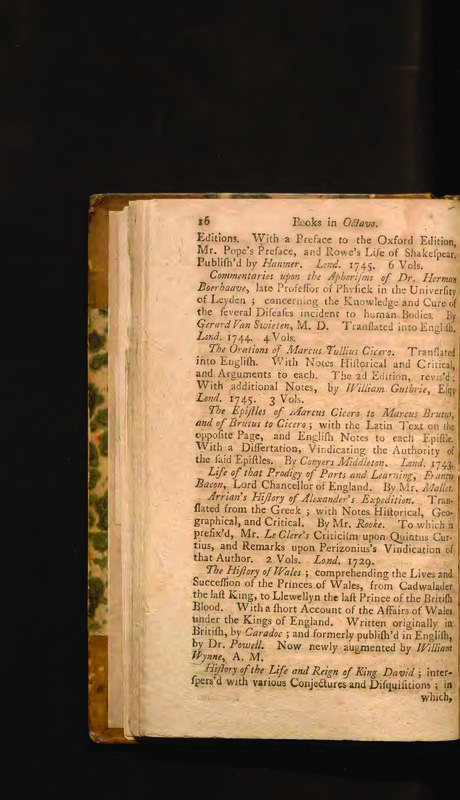 16 Books in Octavo.
Editions. With a Preface to the Oxford Edition,
Mr. Pope's Preface, and Rowe's Life of Shakeſpear.
Publiſh'd by Hanmer. Lond. 1745. 6 Vols.
Commentaries upon the Aphoriſms of Dr. Herman
Boerhaave, late Profeſſor of Phyſick in the Univerſity
of Leyden ; concerning the Knowledge and Cure of
the ſeveral Diſeaſes incident to human Bodies. By
Gerard Van Swieten, M. D. Tranſlated into Engliſh.
Lond. 1744. 4 Vols.
The Orations of Marcus Tullius Cicero. Tranſlated
into Engliſh. With Notes Hiſtorical and Critical,
and Arguments to each. The 2d Edition, revis'd :
With additional Notes, by William Guthrie, Eſq;
Lond. 1745. 3 Vols.
The Epiſtles of Marcus Cicero to Marcus Brutus,
and of Brutus to Cicero ; with the Latin Text on the
oppoſite Page, and Engliſh Notes to each Epiſtle.
With a Diſſertation, Vindicating the Authority of
the ſaid Epiſtles. By Conyers Middleton. Lond. 1743.
Life of that Prodigy of Parts and Learning, Francis
Bacon, Lord Chancellor of England. By Mr. Mallet.
Arrian's Hiſtory of Alexander's Expedition. Tran-
ſlated from the Greek ; with Notes Hiſtorical, Geo-
graphical, and Critical. By Mr. Rooke. To which is
prefix'd, Mr. Le Clerc's Criticiſm upon Quintus Cur-
tius, and Remarks upon Perizonius's Vindication of
that Author. 2 Vols. Lond. 1729.
The Hiſtory of Wales ; comprehending the Lives and
Succeſſion of the Princes of Wales, from Cadwalader
the laſt King, to Llewellyn the laſt Prince of the Britiſh
Blood. With a ſhort Account of the Affairs of Wales
under the Kings of England. Written originally in
Britiſh, by Caradoc ; and formerly publiſh'd in Engliſh,
by Dr. Powell. Now newly augmented by William
Wynne, A. M.
Hiſtory of the Life and Reign of King David ; inter-
ſpers'd with various Conjectures and Diſquiſitions ; in
which,